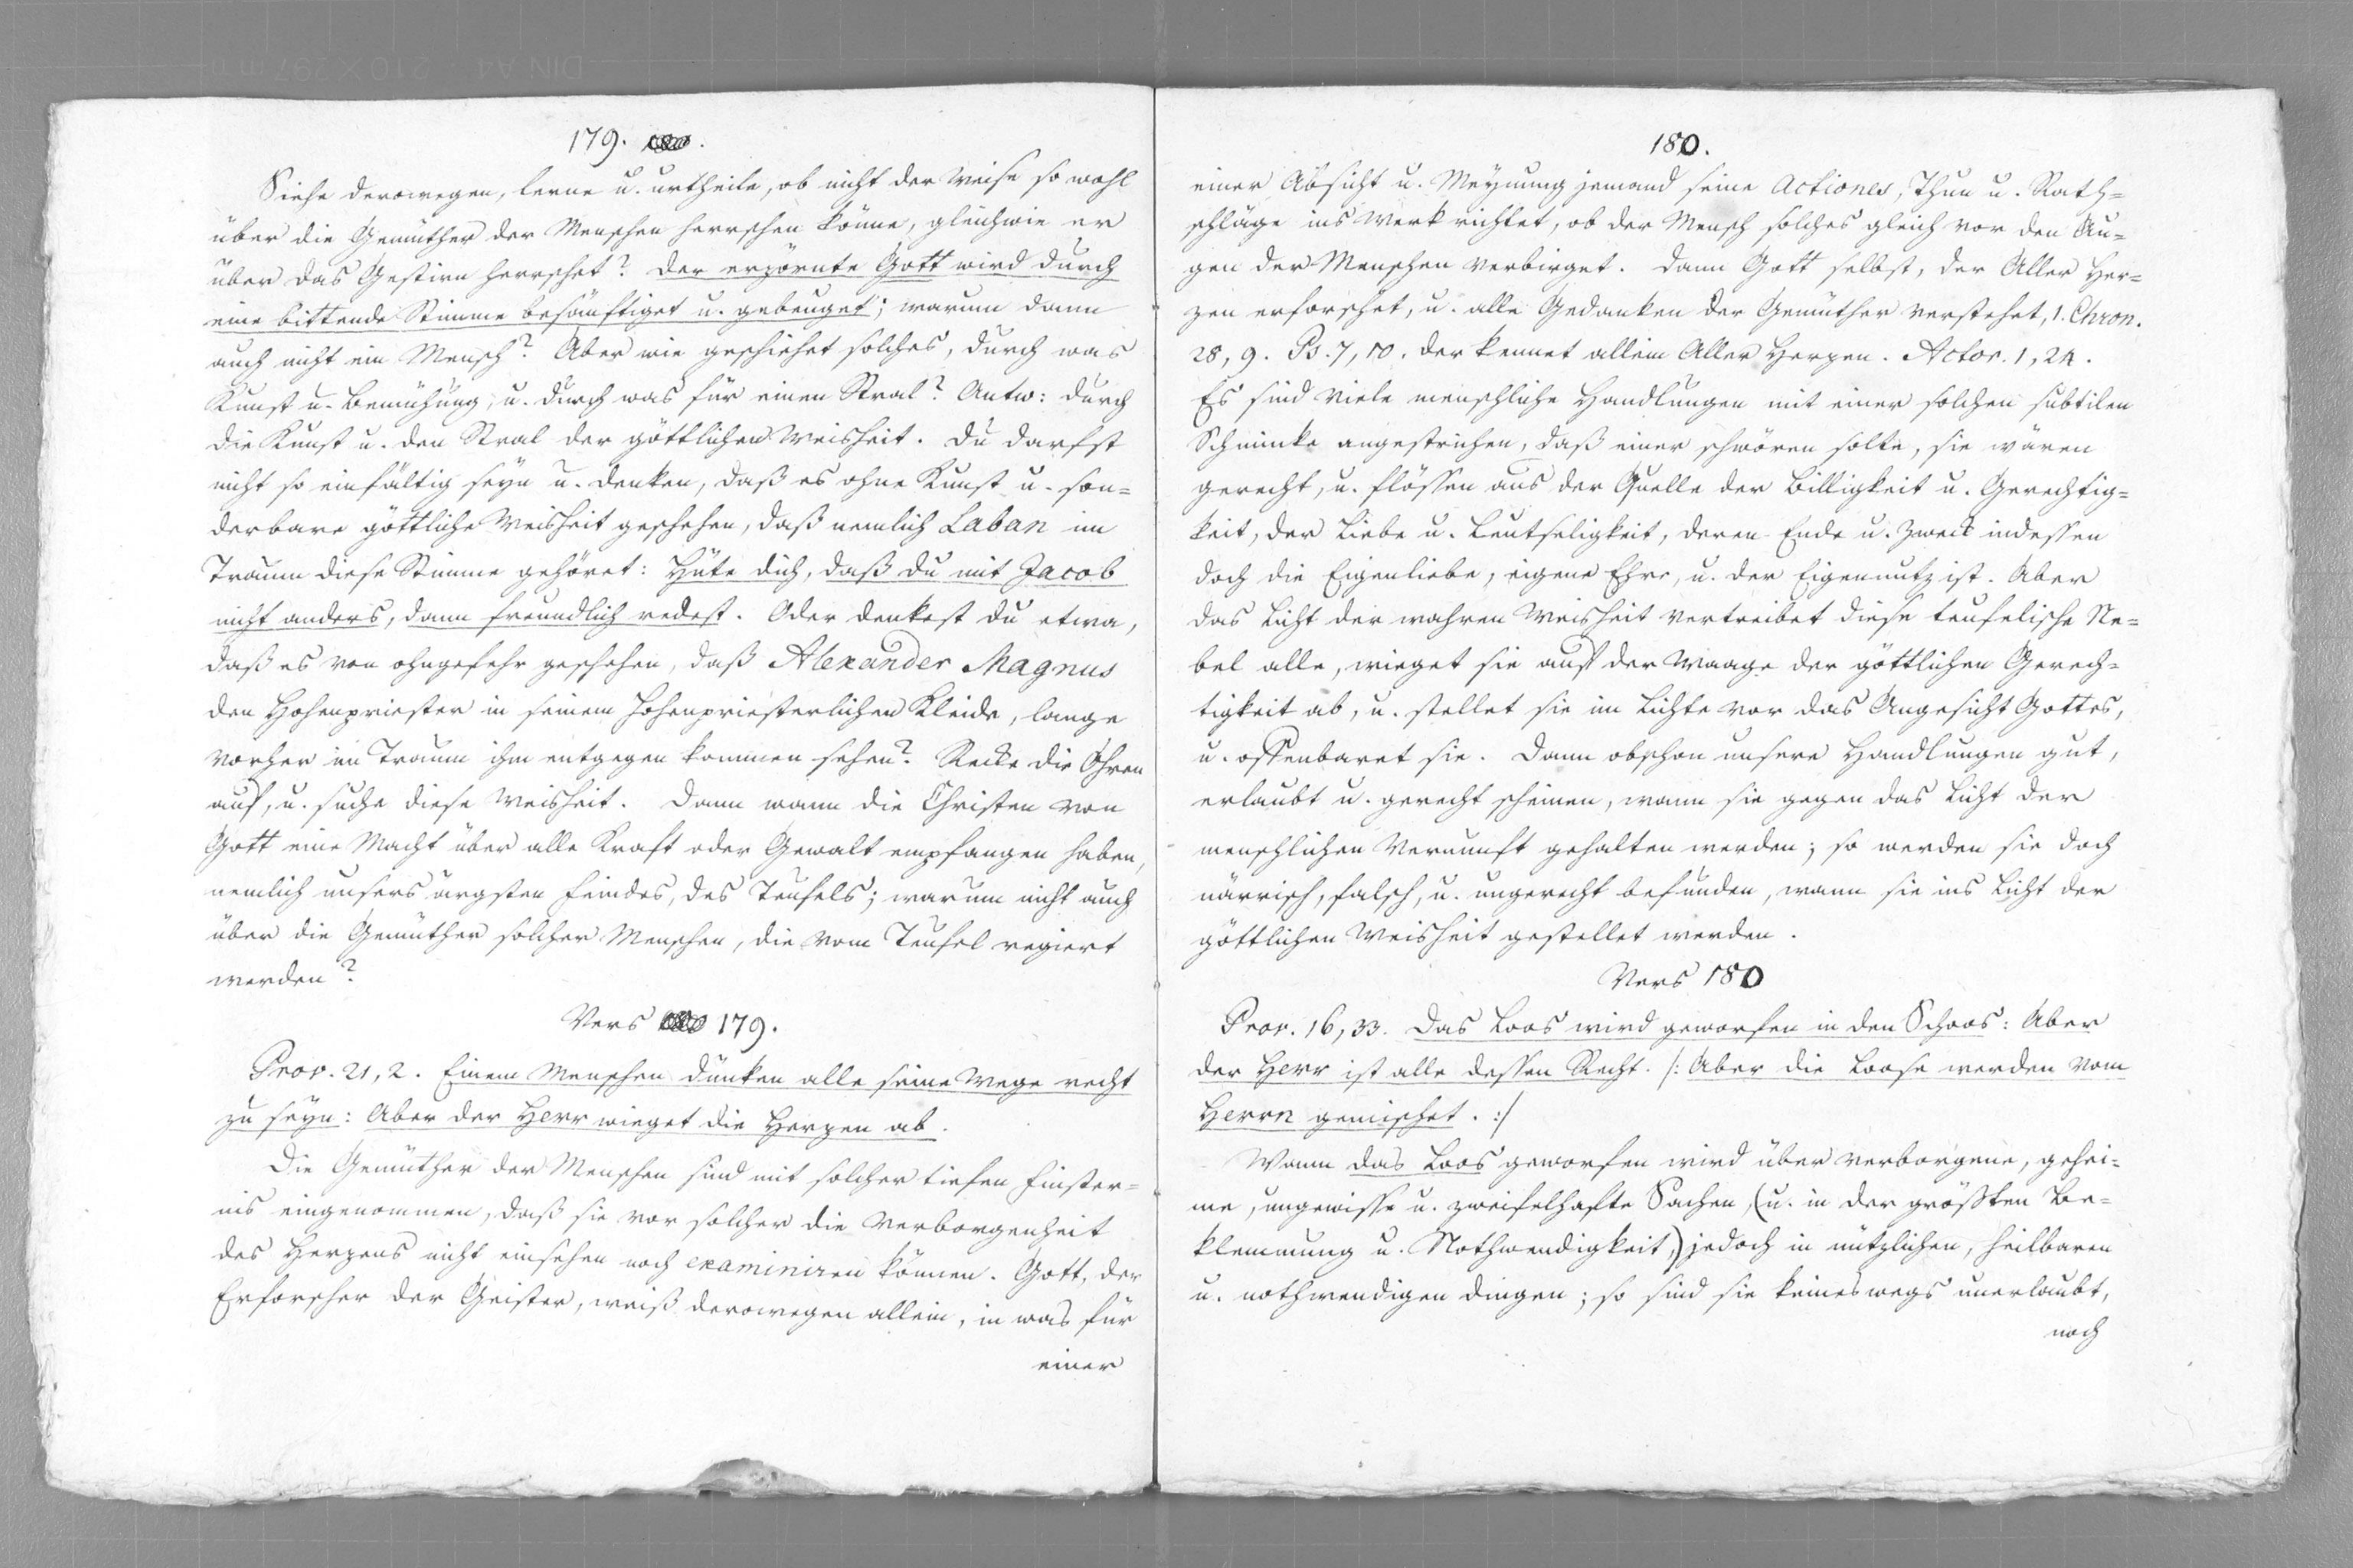 179.
Siehe derowegen, lerne u. urtheile, ob nicht der Weise so wohl
über die Gemüther der Menschen herrschen könne, gleichwie er
über das Gestirn herrschet? Der erzörnte Gott wird durch
eine bittende Stimme besänftiget u. gebeuget; warum dann
auch nicht ein Mensch? Aber wie geschiehet solches, durch was
Kunst u. Bemühung, u. durch was für einen Stral? Antw: durch
die Kunst u. den Stral der göttlichen Weisheit. Du darfst
nicht so einfältig seyn u. denken, daß es ohne Kunst u. son=
derbare göttliche Weisheit geschehen, daß nemlich Laban im
Traum diese Stimme gehöret: Hüte dich, daß du mit Jacob
nicht anders, dann freundlich redest. Oder denkest du etwa,
daß es von ohngefehr geschehen, daß Alexander Magnus
den Hohenpriester in seinem hohenpriesterlichen Kleide, lange
vorher im Traum ihm entgegen kommen sehen? Recke die Ohren
auf, u. suche diese Weisheit. Dann wann die Christen von
Gott eine Macht über alle Kraft oder Gewalt empfangen haben,
nemlich unsers ärgsten Feindes, des Teufels; warum nicht auch
über die Gemüther solcher Menschen, die vom Teufel regiert
werden?
Vers 179.
Prov. 21, 2. Einem Menschen dünken alle seine Wege recht
zu seyn: Aber der Herr wieget die Herzen ab.
Die Gemüther der Menschen sind mit solcher tiefen Finster=
nis eingenommen, daß sie vor solcher die Verborgenheit
des Herzens nicht einsehen noch examiniren können. Gott, der
Erforscher der Geister, weiß derowegen allein, in was für
einer
180.
einer Absicht u. Meynung jemand seine Actiones, Thun u. Rath=
schläge ins Werk richtet, ob der Mensch solches gleich vor den Au=
gen der Menschen verbirget. Dann Gott selbst, der Aller Her=
zen erforschet, u. alle Gedanken der Gemüther verstehet, 1. Chron.
28, 9. Ps. 7, 10. der kennet allein Aller Herzen. Actor. 1, 24.
Es sind viele menschliche Handlungen mit einer solchen subtilen
Schminke angestrichen, daß einer schwören solte, sie wären
gerecht, u. flössen aus der Quelle der Billigkeit u. Gerechtig=
keit, der Liebe u. Leutseligkeit, deren Ende u. Zweck indessen
doch die Eigenliebe, eigene Ehre, u. der Eigennutz ist. Aber
das Licht der wahren Weisheit vertreibet diese teufelische Ne=
bel alle, wieget sie auf der Waage der göttlichen Gerech=
tigkeit ab, u. stellet sie im Lichte vor das Angesicht Gottes,
u. offenbaret sie. Dann obschon unsere Handlungen gut,
erlaubt u. gerecht scheinen, wann sie gegen das Licht der
menschlichen Vernunft gehalten werden; so werden sie doch
närrisch, falsch, u. ungerecht befunden, wann sie ins Licht der
göttlichen Weisheit gestellet werden.
Vers 180
Prov. 16, 33. Das Loos wird geworfen in den Schoos: Aber
der Herr ist alle dessen Recht. /: Aber die Loose werden vom
Herrn gemischet. :/
Wann das Loos geworfen wird über verborgene, gehei=
me, ungewisse u. zweifelhafte Sachen, (u. in der größten Be=
klemmung u. Nothwendigkeit,) jedoch in nützlichen, heilbaren
u. nothwendigen Dingen; so sind sie keineswegs unerlaubt,
noch